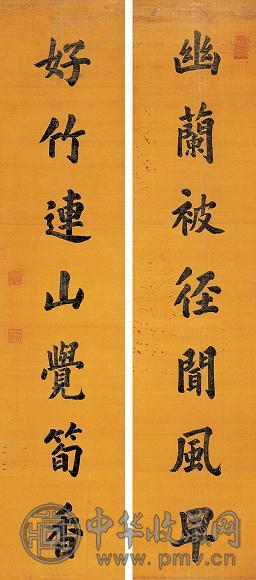 幽蘭被径聞風早
好竹連山覺筍香
中华收藏网
www.pmv.cn